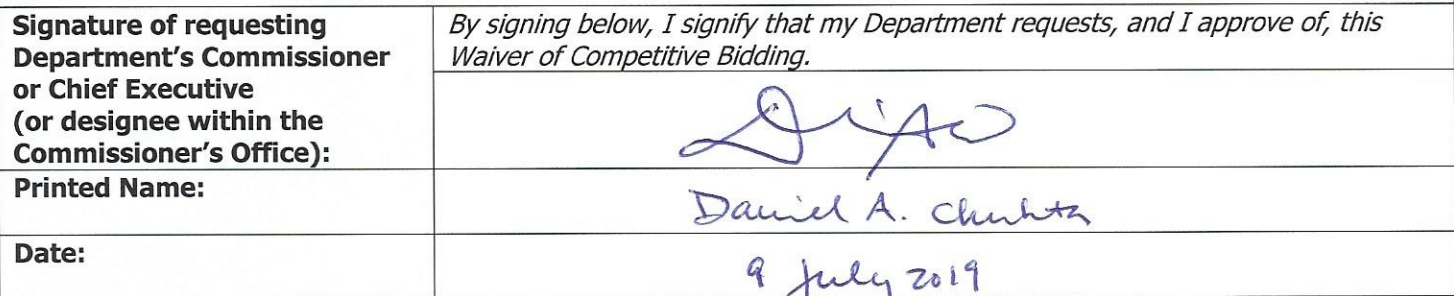 Signature of requesting
Department's Commissioner
or Chief Executive
(or designee within the
Commissioner's Office):
By signing below, I signify that my Department requests, and I approve of, this
Waiver of Competitive Bidding.
Printed Name:
Daniel A. Chuhta
Date:
9 July 2019